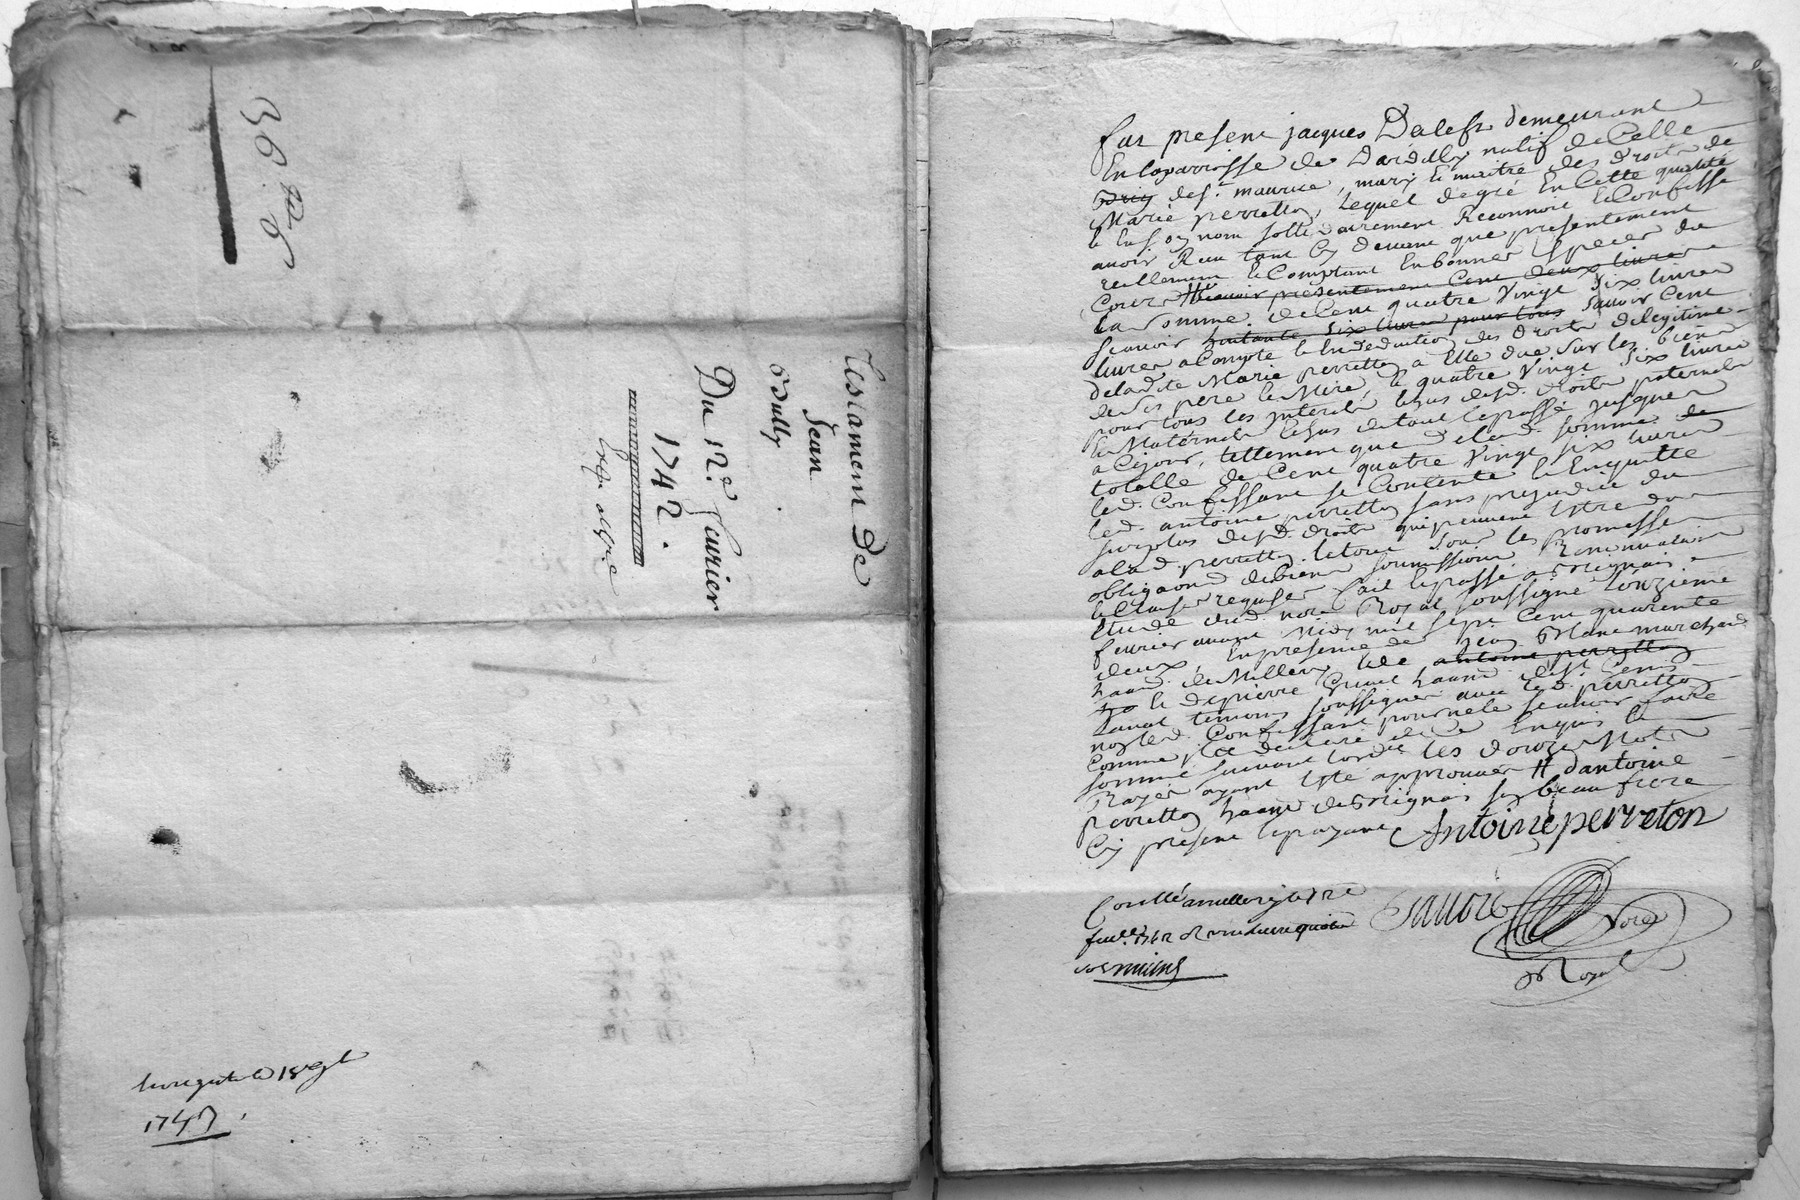 Testament De
Jean
Bully
Du 12e feurier
1742.
1747
fut present jacques Dalest demeurant
En laparroisse de Dardilly natif de Celle
des. maurice, mary Et maitre des droits de
Marie perretton, Lequel degré En Cette qualité
& En son nom sollidairement Reconnoit & Confesse
avoir Receu tant Cy deuant que presentement
reellement & Comptant En bonnes Especes du
Cours # scauoir presentement Cent deux liures
La somme de Cent quatre Vingt Six liures
scauoir huitante six liures pour tous sauoir Cent
liures a Compte & En deduction des droits de legitime
deladite Marie perretton a Elle due sur les biens
de ses pere & Mere, & quatre Vingt Six liures
pour tous les Interests Echus desd. droits paternels
& Maternels Echus de tout le passé jusques
a Cejour, tellement que de lad. somme de
totalle de Cent quatre Vingt six liures
led. Confessant se Contente & En quitte
led. antoine perretton sans prejudice du
surplus desd. droits qui peuuent Estre dus
alad. perretton, le tout sous les promesses
obligaons de biens soumissions Renonciations
& Clauses requises fait & passé a Brignais
Etude dud. nore Royal soussigné Lonzieme
feurier auant Midy mil sept Cent quarente
deux, En presence de Jean Blanc marchand
haant de Millery & de antoine perretton
temoins soussignes auec led. perretton
non led. Confessant pour ne le scauoir faire
Comme il a declaré de Ce Enquis &
sommé suiuant lordce Les douze Mots
Rayés ayant Esté approuués # dantoine
Perretton haant de Brignais son beau frere
Cy present & payant Antoine perreton
Controllé a millery le
1742
Nore
Royal